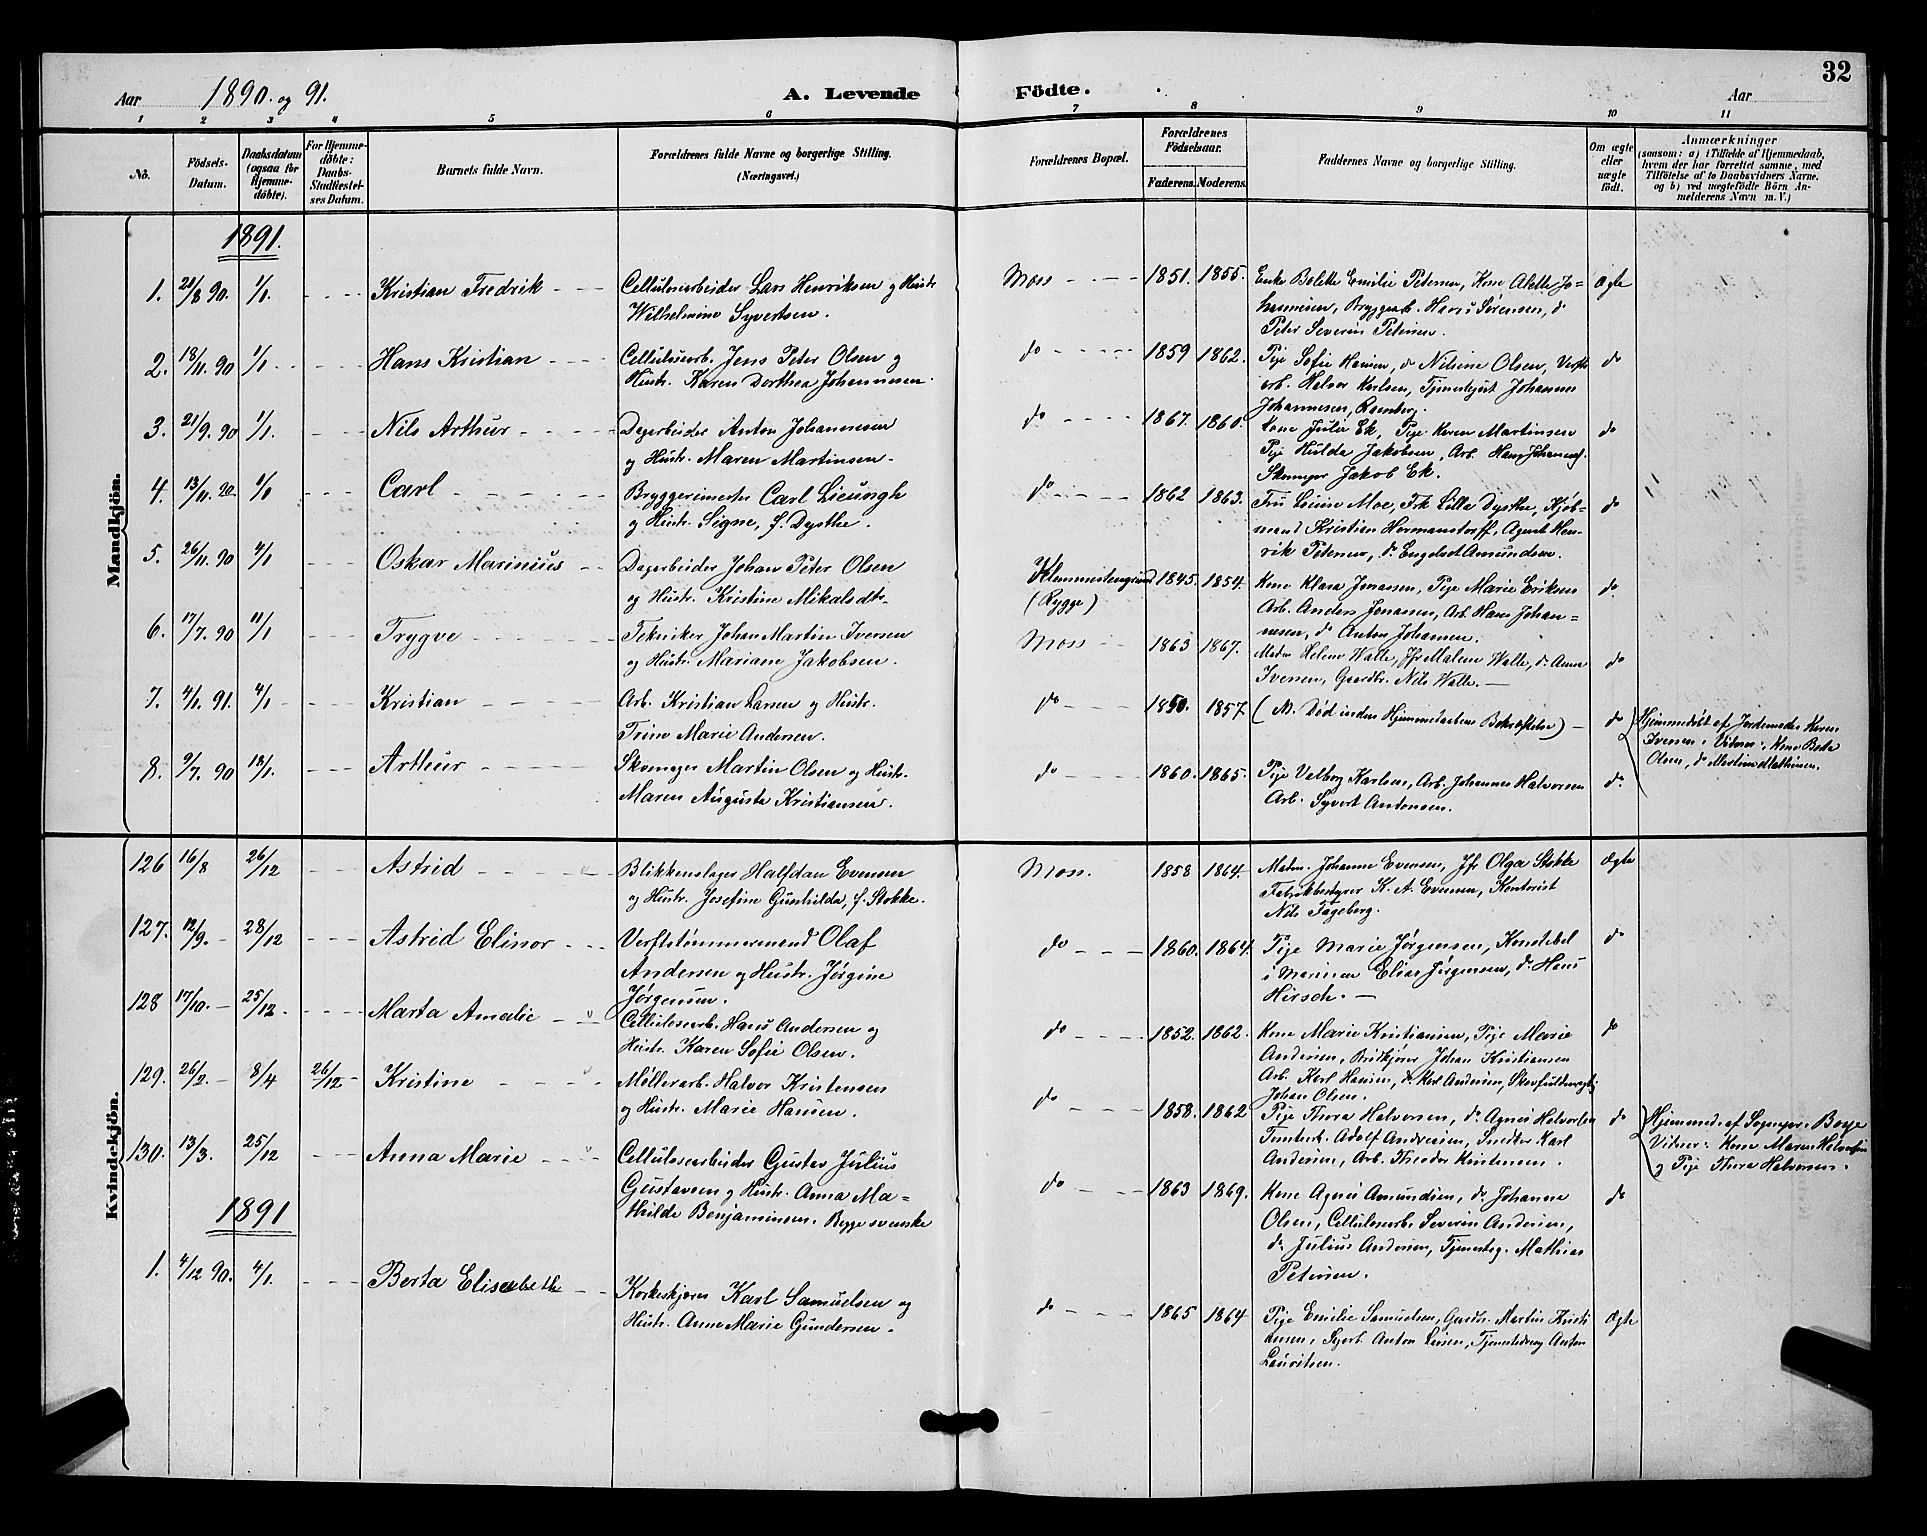 32
Aar 1890. og 91.
A. Levende Födte.
Aar
1 2 3 4 5 6 7 8 9 10 11
No.
Födsels-Datum.
Daabsdatum (ogsaa for Hjemme-døbte).
For Hjemme-døbte: Daabs-Stadfæstel-ses Datum.
Barnets fulde Navn.
Forældrenes fulde Navne og borgerlige Stilling.
(Næringsvei.)
Forældrenes Bopæl.
Forældrenes Födselsaar.
Faderens. Moderens.
Faddernes Navne og borgerlige Stilling.
Om ægte eller uægte födt.
Anmærkninger
(saasom: a) i Tilfælde af Hjemmedaab,
hvem der har forrettet samme, med
Tilföielse af to Daabsvidners Navne,
og b) ved uægtefödte Börn An-
melderens Navn m. V.)
Mandkjön.
1891.
1. 21/8 90. 1/1. Kristian Fredrik
Cellulosearbeider Lars Henriksen og Hustr
Wilhelmine Syvertsen.
Moss 1851. 1855.
Enke Bolette Emilie Petersen, Kone Alette Jo=
hannesen, Bryggearb. Hans Sørensen, do
Peter Severin Petersen.
Ægte
2. 18/11. 90 1/1. Hans Kristian
Cellulosearb. Jens Peter Olsen og
Hustr. Karen Dorthea Johannesen.
do 1859 1862.
Pige Sofie Hansen, do Nilsine Olsen, Verfts
arb. Halvor Karlsen, Tjenestegut Johannes
Johannesen, Ramberg.
do
3. 21/9. 90 1/1. Nils Arthur
Dagarbeider Anton Johannesen
og Hustr. Maren Martinsen.
do 1867. 1860.
Kone Julie Ek, Pige Karen Martinsen
Pige Hulda Jakobsen, Arb. Hans Johannes.
Skomager Jakob Ek.
do
4. 13/11. 90 1/1 Carl
Bryggerimester Carl Lieungh
og Hustr. Signe, f. Dysthe.
do 1862 1863.
Fru Louise Moe, Frk Lilla Dysthe, Kjøb-
mand Kristian Hermanstorff, Agent Hen-
rik Petersen, do Engebret Amundsen.
do
5. 26/11. 90 4/1 Oskar Marinius
Dagarbeider Johan Peter Olsen
og Hustr. Kristine Mikalsdtr.
(Rygge) 1845. 1854.
Kone Klara Jonassen, Pige Marie Eriksen
Arb. Anders Jonassen, Arb. Hans Johan=
nesen, do Anton Johansen.
do
6. 17/7. 90 11/1 Trygve
Tekniker Johan Martin Iversen
og Hustr. Mariane Jakobsen.
Moss 1863 1867.
Madm Helene Walle, Jfr Malene Walle, do Anna
Iversen, Gaardbr. Nils Walle.
do
7. 4/1. 91. 4/1 Kristian
Arb. Kristian Larsen og Hustr.
Trine Marie Andersen.
do 1850. 1857.
(M. Død inden Hjemmedaabens Bekræftelse)
do
Hjemmedøbt af Jordemoder Karen
Iversen. Vidner: Kone Berte
Olsen, do Martine Mathisen.
8. 9/7. 90 18/1. Arthur
Skomager Martin Olsen og Hustr.
Maren Augusta Kristiansen.
do 1860. 1865.
Pige Valborg Karlsen, Arb. Johannes Halvorsen
Arb. Syvert Antonsen.
do
Kvindekjön.
126 16/8 26/12 Astrid
Blikkenslager Halfdan Evensen
og Hustr. Josefine Gunhilda, f. Stokke.
Moss. 1858 1864.
Madm. Johanne Evensen, Jfr Olga Stokke
Fabrikbestyrer K. A. Evensen, Kontorist
Nils Fageberg.
Ægte
127. 12/9. 28/12 Astrid Elinor
Verftstømmermand Olaf
Andersen og Hustr. Jørgine
Jørgensen.
do 1860. 1864.
Pige Marie Jørgensen, Konstabel
i Marinen Elias Jørgensen, do Hans
Hirsch.
do
128 17/10. 25/12. Marta Amalie
Cellulosearb. Hans Andersen og
Hustr. Karen Sofie Olsen.
do 1852. 1862.
Kone Marie Kristiansen, Pige Marie
Andersen, Johan Kristiansen
Arb. Karl Hansen, do Karl Andersen,
Johan Olsen.
do
129. 26/2. 8/4 26/12 Kristine
Møllerarb. Halvor Kristensen
og Hustr. Marie Hansen.
do 1858. 1862
Pige Thora Halvorsen, do Agnes Halvorsen
Tomterb. Adolf Andresen, Snedker Karl
Andersen, Arb. Theodor Kristensen.
do
Hjemmed. af Sognepr. Borge
Vidner: Kone Maren Halvorsen
og Pige Thora Halvorsen.
130. 13/3. 25/12 Anna Marie
Cellulosearbeider Gustav Julius
Gustavsen og Hustr. Anna Ma=
thilde Benjaminsen. Begge svenske
do 1863 1869.
Kone Agnes Amundsen, do Johanne
Olsen, Cellulosearb. Severin Andersen,
do Julius Andersen, Tjenesteg. Mathias
Petersen.
do
1891
1. 4/12 90. 4/1. Berta Elisabeth
Korkeskjærer Karl Samuelsen og
Hustr. Anne Marie Gundersen.
do 1865 1864
Pige Emilie Samuelsen, Gaardbr. Martin Kristi
ansen, Anton Larsen, Tjenestedreng Anton
Lauritsen.
Ægte